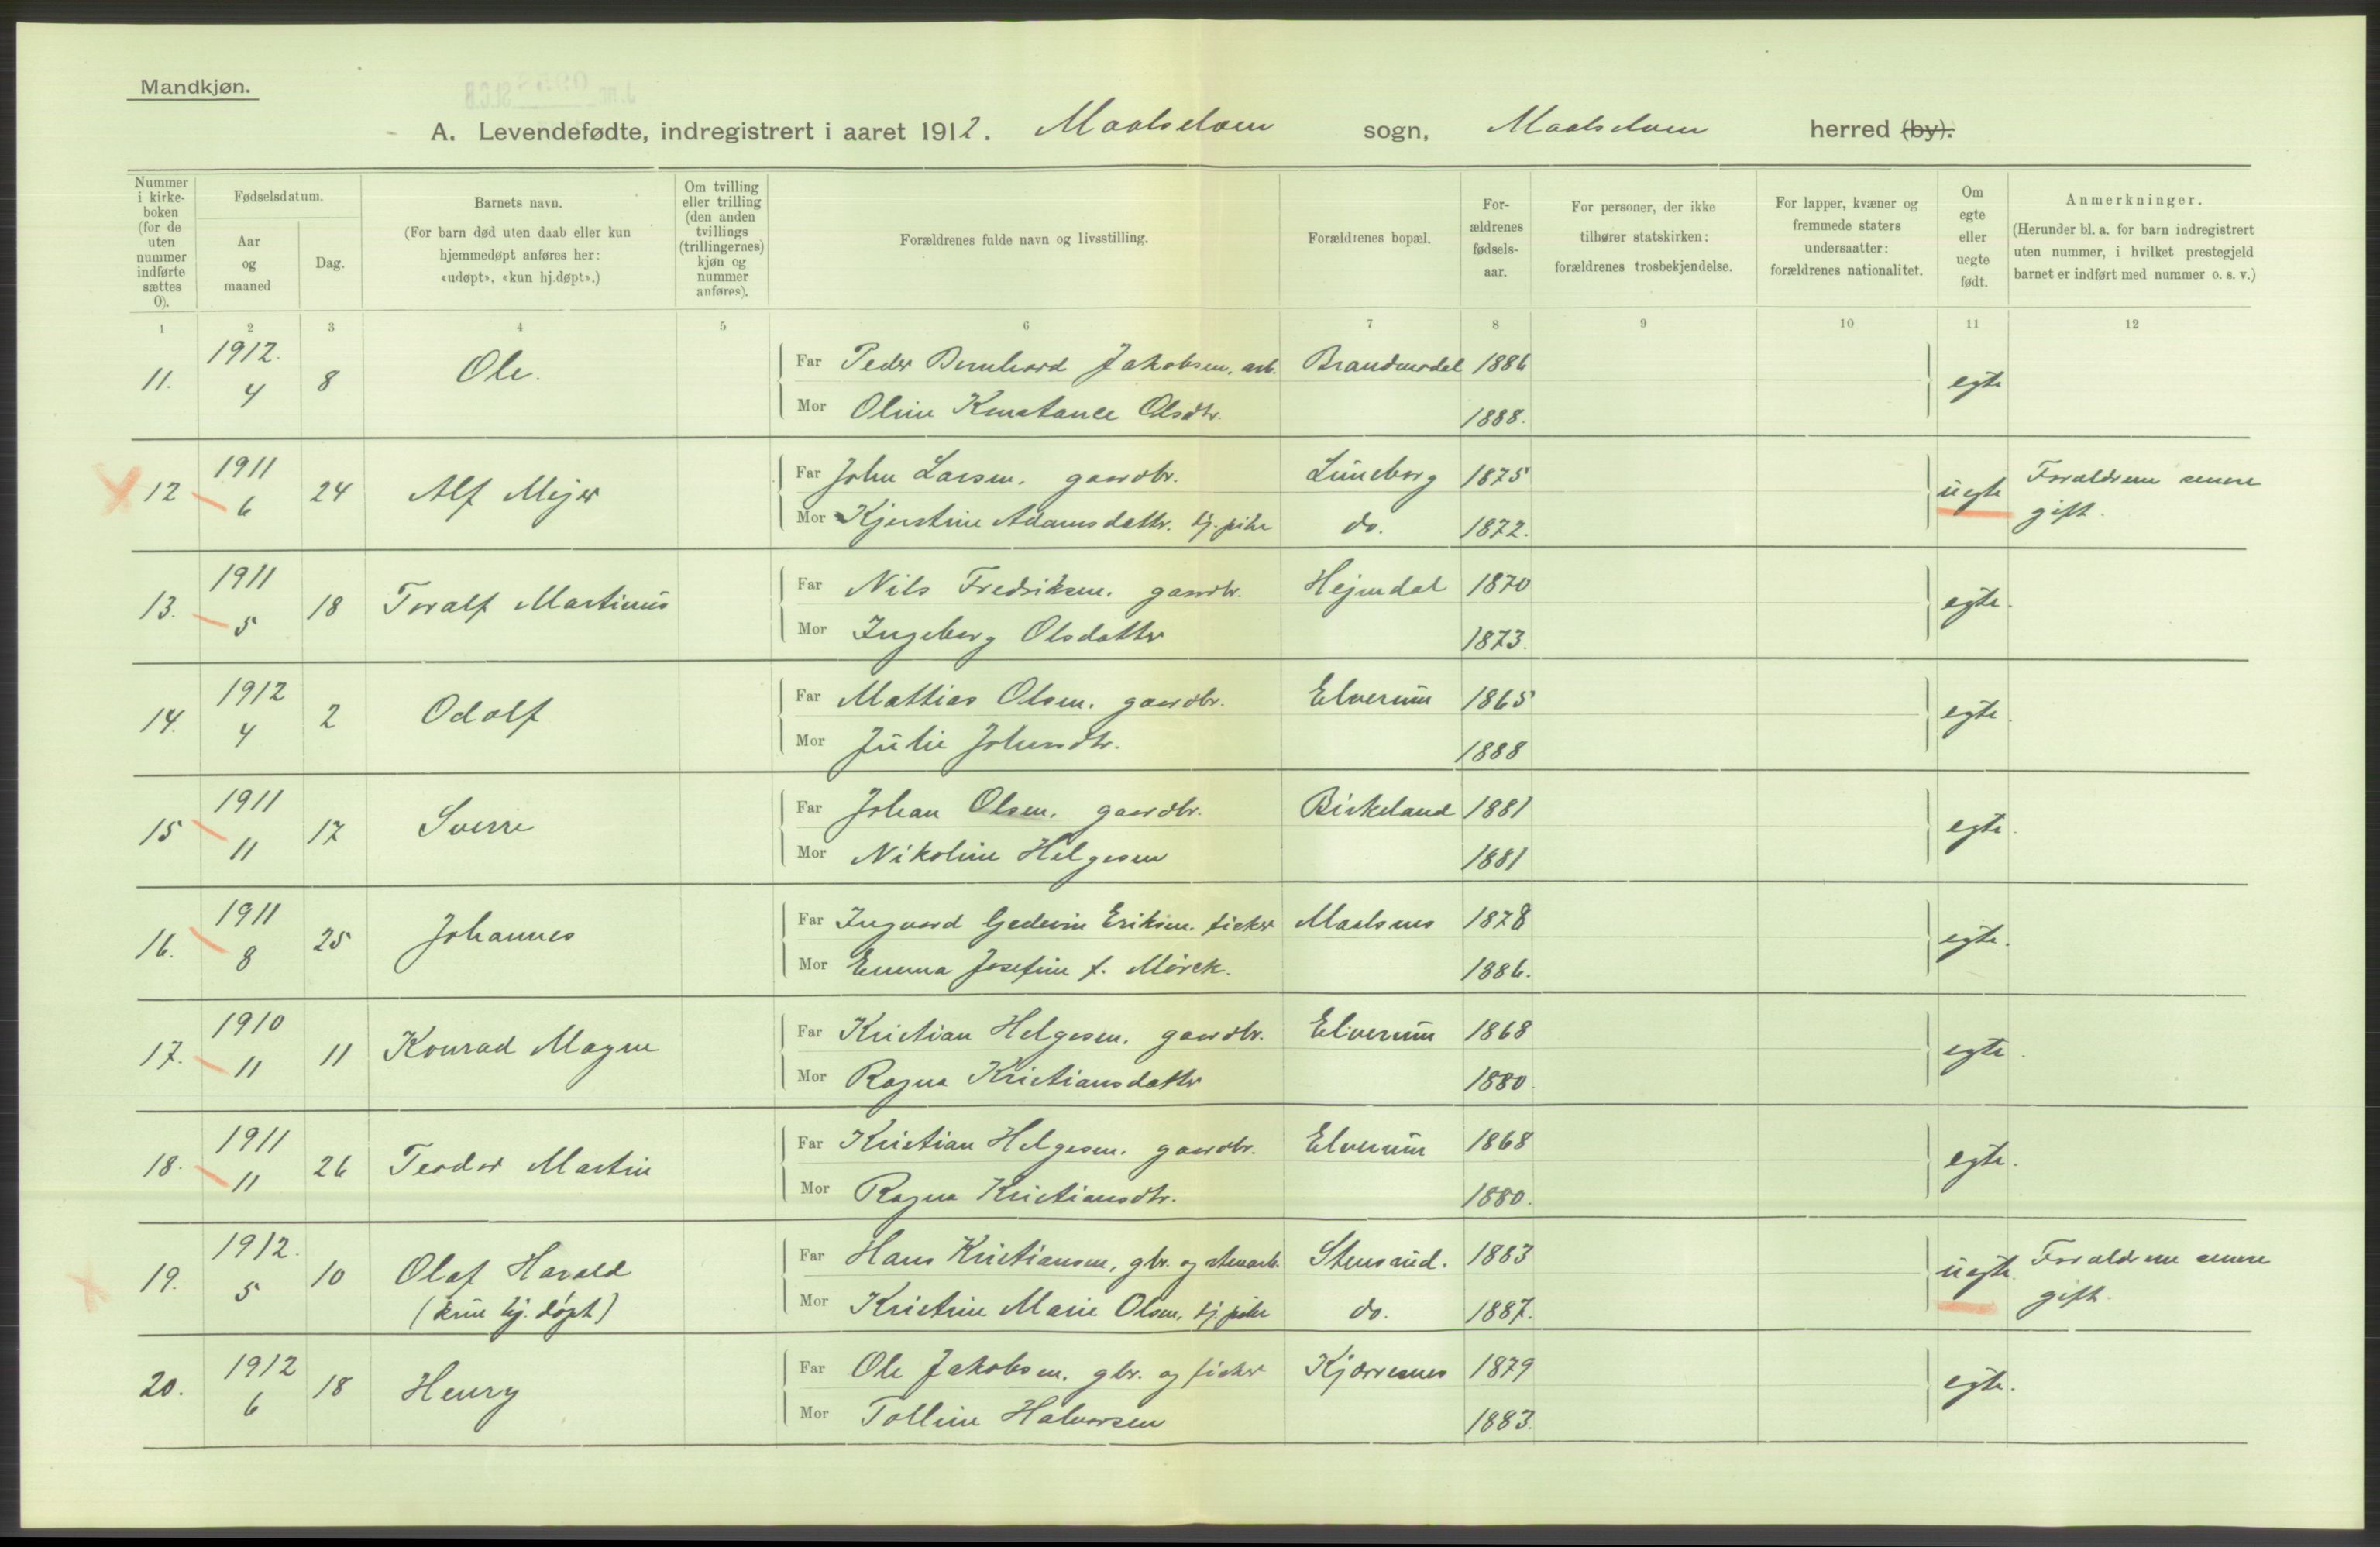 Mandkjøn.
A. Levendefødte, indregistrert i aaret 1912. Maalselven sogn, Maalselven herred (by).
Nummer i kirkeboken (for de uten nummer indførte sættes 0).
Fødselsdatum.
Aar og maaned
Dag.
Barnets navn.
(For barn død uten daab eller kun hjemmedøpt anføres her: «udøpt», «kun hj.døpt».)
Om tvilling eller trilling (den anden tvillings (trillingernes) kjøn og nummer anføres).
Forældrenes fulde navn og livsstilling.
Forældrenes bopæl.
For-ældrenes fødsels-aar.
For personer, der ikke tilhører statskirken: forældrenes trosbekjendelse.
For lapper, kvæner og fremmede staters undersaatter: forældrenes nationalitet.
Om egte eller uegte født.
Anmerkninger.
(Herunder bl. a. for barn indregistrert uten nummer, i hvilket prestegjeld barnet er indført med nummer o. s. v.)
1 2 3 4 5 6 7 8 9 10 11 12
11. 1912. 4 8 Ole. Far Peder Bernhard Jakobsen, arb. Brandmodel 1886 egte
Mor Oline Konstance Olsdtr. 1888.
12 1911 6 24 Alf Mejer Far John Larsen. gaardbr. Lüneborg 1875 uegte Forældrene senere gift.
Mor Kjerstine Adamsdattr. tj. pike do. 1872.
13. 1911 5 18 Toralf Martinus Far Nils Fredriksen. gaardbr. Hejmdal 1870 egte.
Mor Ingeborg Olsdatter 1873.
14. 1912 4 2 Odolf Far Mattias Olsen. gaardbr. Elverum 1865 egte.
Mor Julie Johnsdtr. 1888
15 1911 11 17 Sverre Far Johan Olsen. gaardbr. Birkeland 1881 egte.
Mor Nikoline Helgesen 1881
16. 1911 8 25 Johannes Far Ingvard Gedeon Eriksen. fisker Maalsnes 1878 egte.
Mor Emma Josefine f. Mörck. 1886.
17. 1910 11 11 Konrad Magne Far Kristian Helgesen. gaardbr. Elverum 1868 egte.
Mor Ragna Kristiansdatter 1880.
18. 1911 11 26 Teodor Martin Far Kristian Helgesen. gaardbr. Elverum 1868 egte.
Mor Ragna Kristiansdtr. 1880.
19. 1912. 5 10 Olaf Harald (kun hj. døpt) Far Hans Kristiansen, gbr. og stenarb. Stensrud. 1883 uegte. Forældrene senere gift.
Mor Kristine Marie Olsen, tj. pike do. 1887.
20. 1912 6 18 Henry Far Ole Jakobsen. gbr. og fisker Kjærresnes 1879 egte.
Mor Tolline Halvorsen 1883.